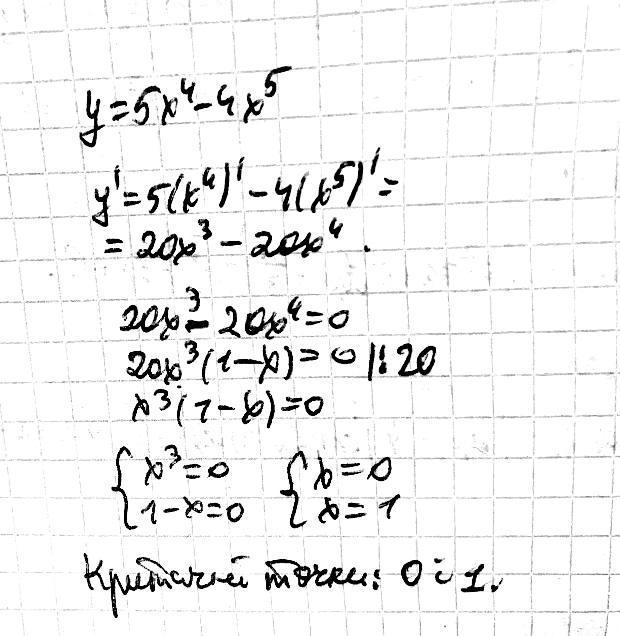 y=5x⁴-4x⁵
y'=5(x⁴)'-4(x⁵)'=
=20x³-20x⁴.
20x³-20x⁴=0
20x³(1-x)=0 |:20
x³(1-x)=0
{x³=0 {x=0
{1-x=0 {x=1
точки: 0 і 1.